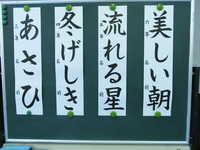 美しい朝
流れる星
冬げしき
あさひ